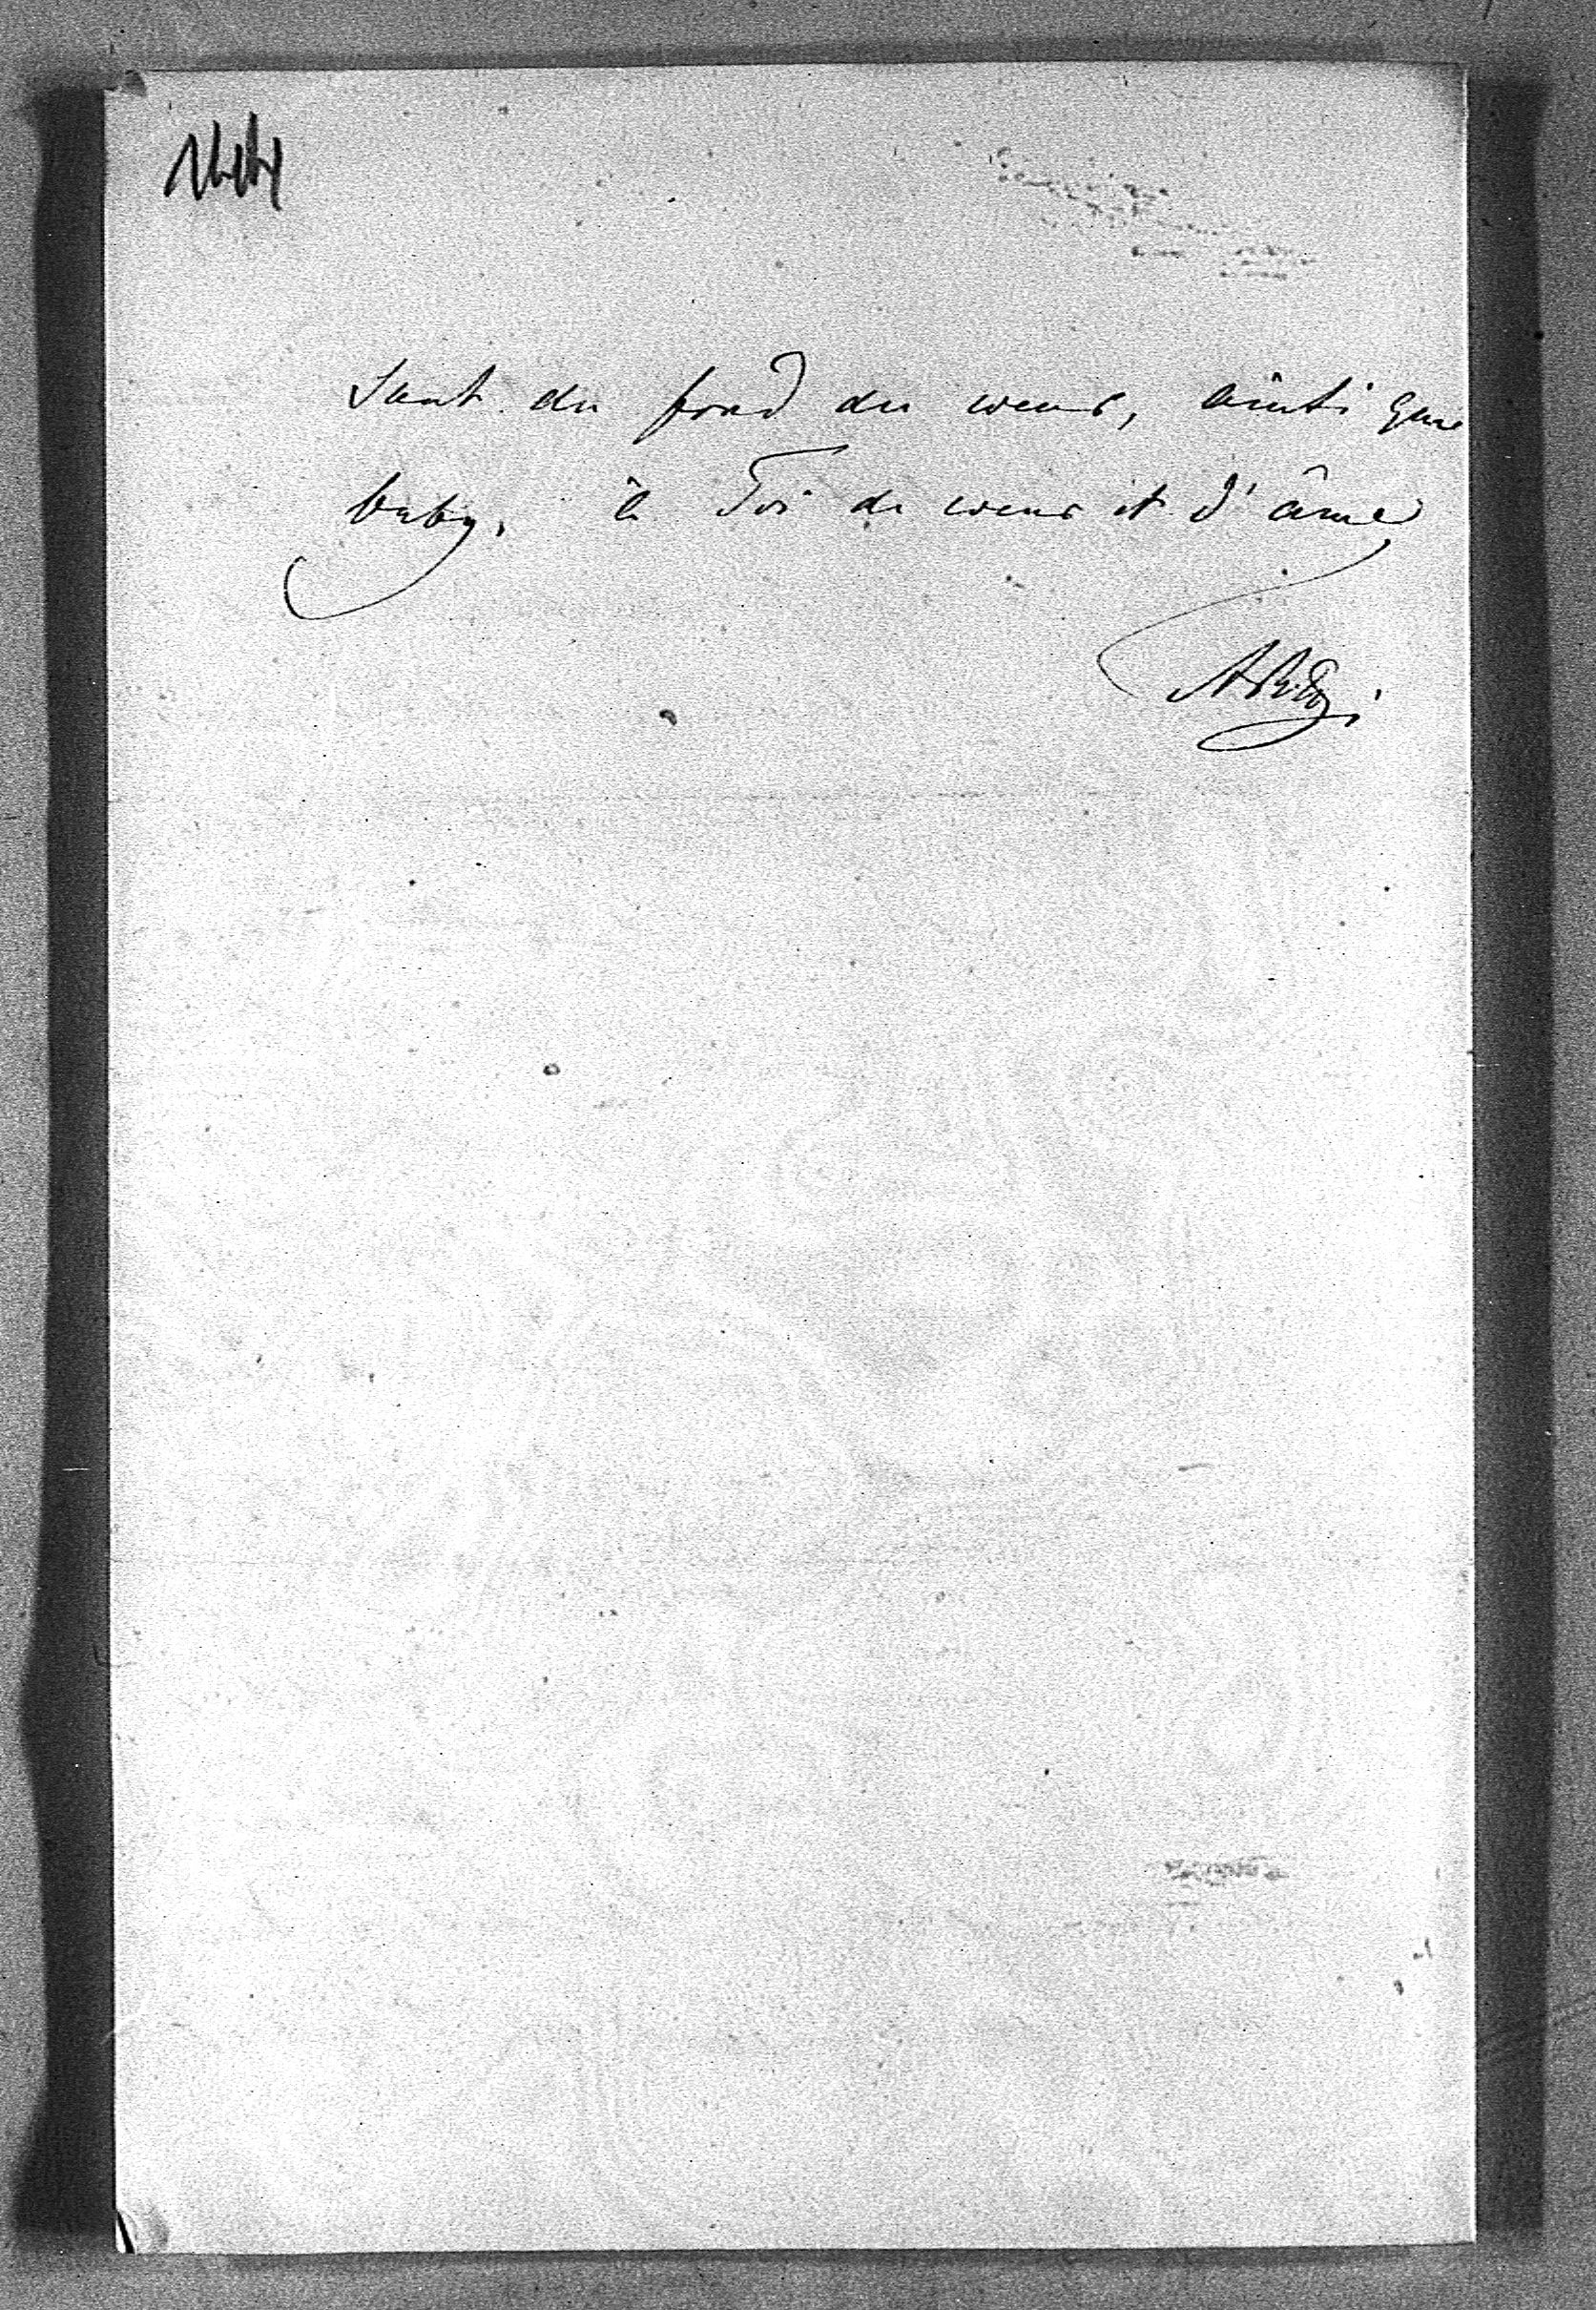 144
sant du fond du coeur, ainsi que
baby. à Toi de coeur et d'âme